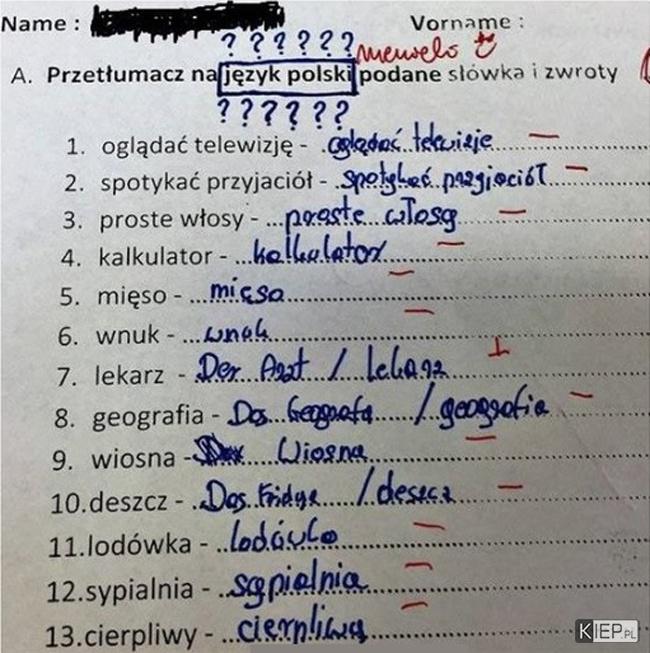 Name : Vorname :
? ? ? ? ? ?
A. Przetłumacz na język polski podane słówka i zwroty
? ? ? ? ? ?
1. oglądać telewizję - oglądać telewizje
2. spotykać przyjaciół - spotykać przyjaciół
3. proste włosy - proste włosy
4. kalkulator - kalkulator
5. mięso - mięso
6. wnuk - wnuk
7. lekarz - Der Arzt / lekarz
8. geografia - Das Geografa / geografia
9. wiosna - Wiosna
10.deszcz - Das Fridge / deszcz
11.lodówka - lodówka
12.sypialnia - sypialnia
13.cierpliwy - cierpliwy
KIEP.PL